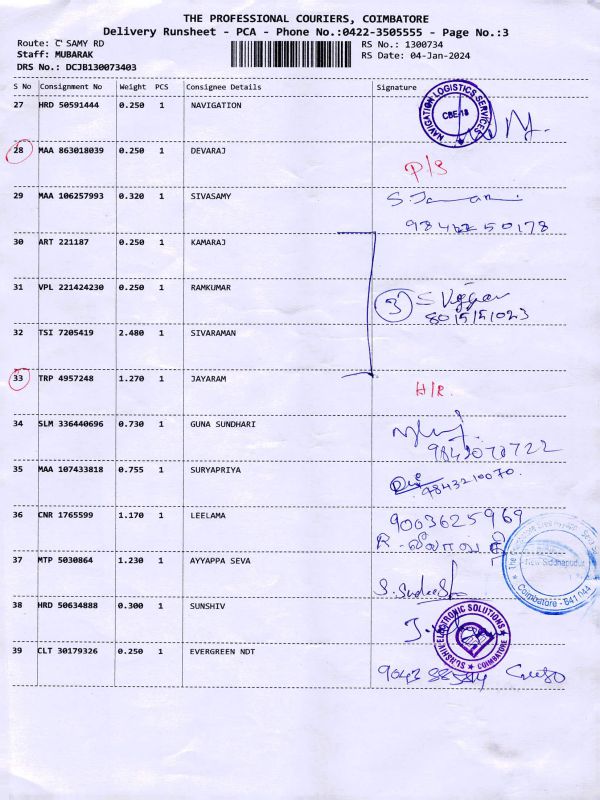 THE PROFESSIONAL COURIERS, COIMBATORE
Delivery Runsheet - PCA - Phone No.:0422-3505555 - Page No.:3
Route: C' SAMY RD RS No.: 1300734
Staff: MUBARAK RS Date: 04-Jan-2024
DRS No.: DCJB130073403
S No Consignment No Weight PCS Consignee Details Signature
27 HRD 50591444 0.250 1 NAVIGATION
NAVIGATION LOGISTICS SERVICES
CBE-18
28 MAA 863018039 0.250 1 DEVARAJ
P/S
29 MAA 106257993 0.320 1 SIVASAMY
30 ART 221187 0.250 1 KAMARAJ
31 VPL 221424230 0.250 1 RAMKUMAR
3
8015151023
32 TSI 7205419 2.480 1 SIVARAMAN
33 TRP 4957248 1.270 1 JAYARAM
H/R
34 SLM 336440696 0.730 1 GUNA SUNDHARI
35 MAA 107433818 0.755 1 SURYAPRIYA
9843210070
36 CNR 1765599 1.170 1 LEELAMA
9003625969
37 MTP 5030864 1.230 1 AYYAPPA SEVA
New Siddhapudur
Coimbatore - 641 044
38 HRD 50634888 0.300 1 SUNSHIV
SUNSHIV ELECTRONIC SOLUTIONS
COIMBATORE
39 CLT 30179326 0.250 1 EVERGREEN NDT